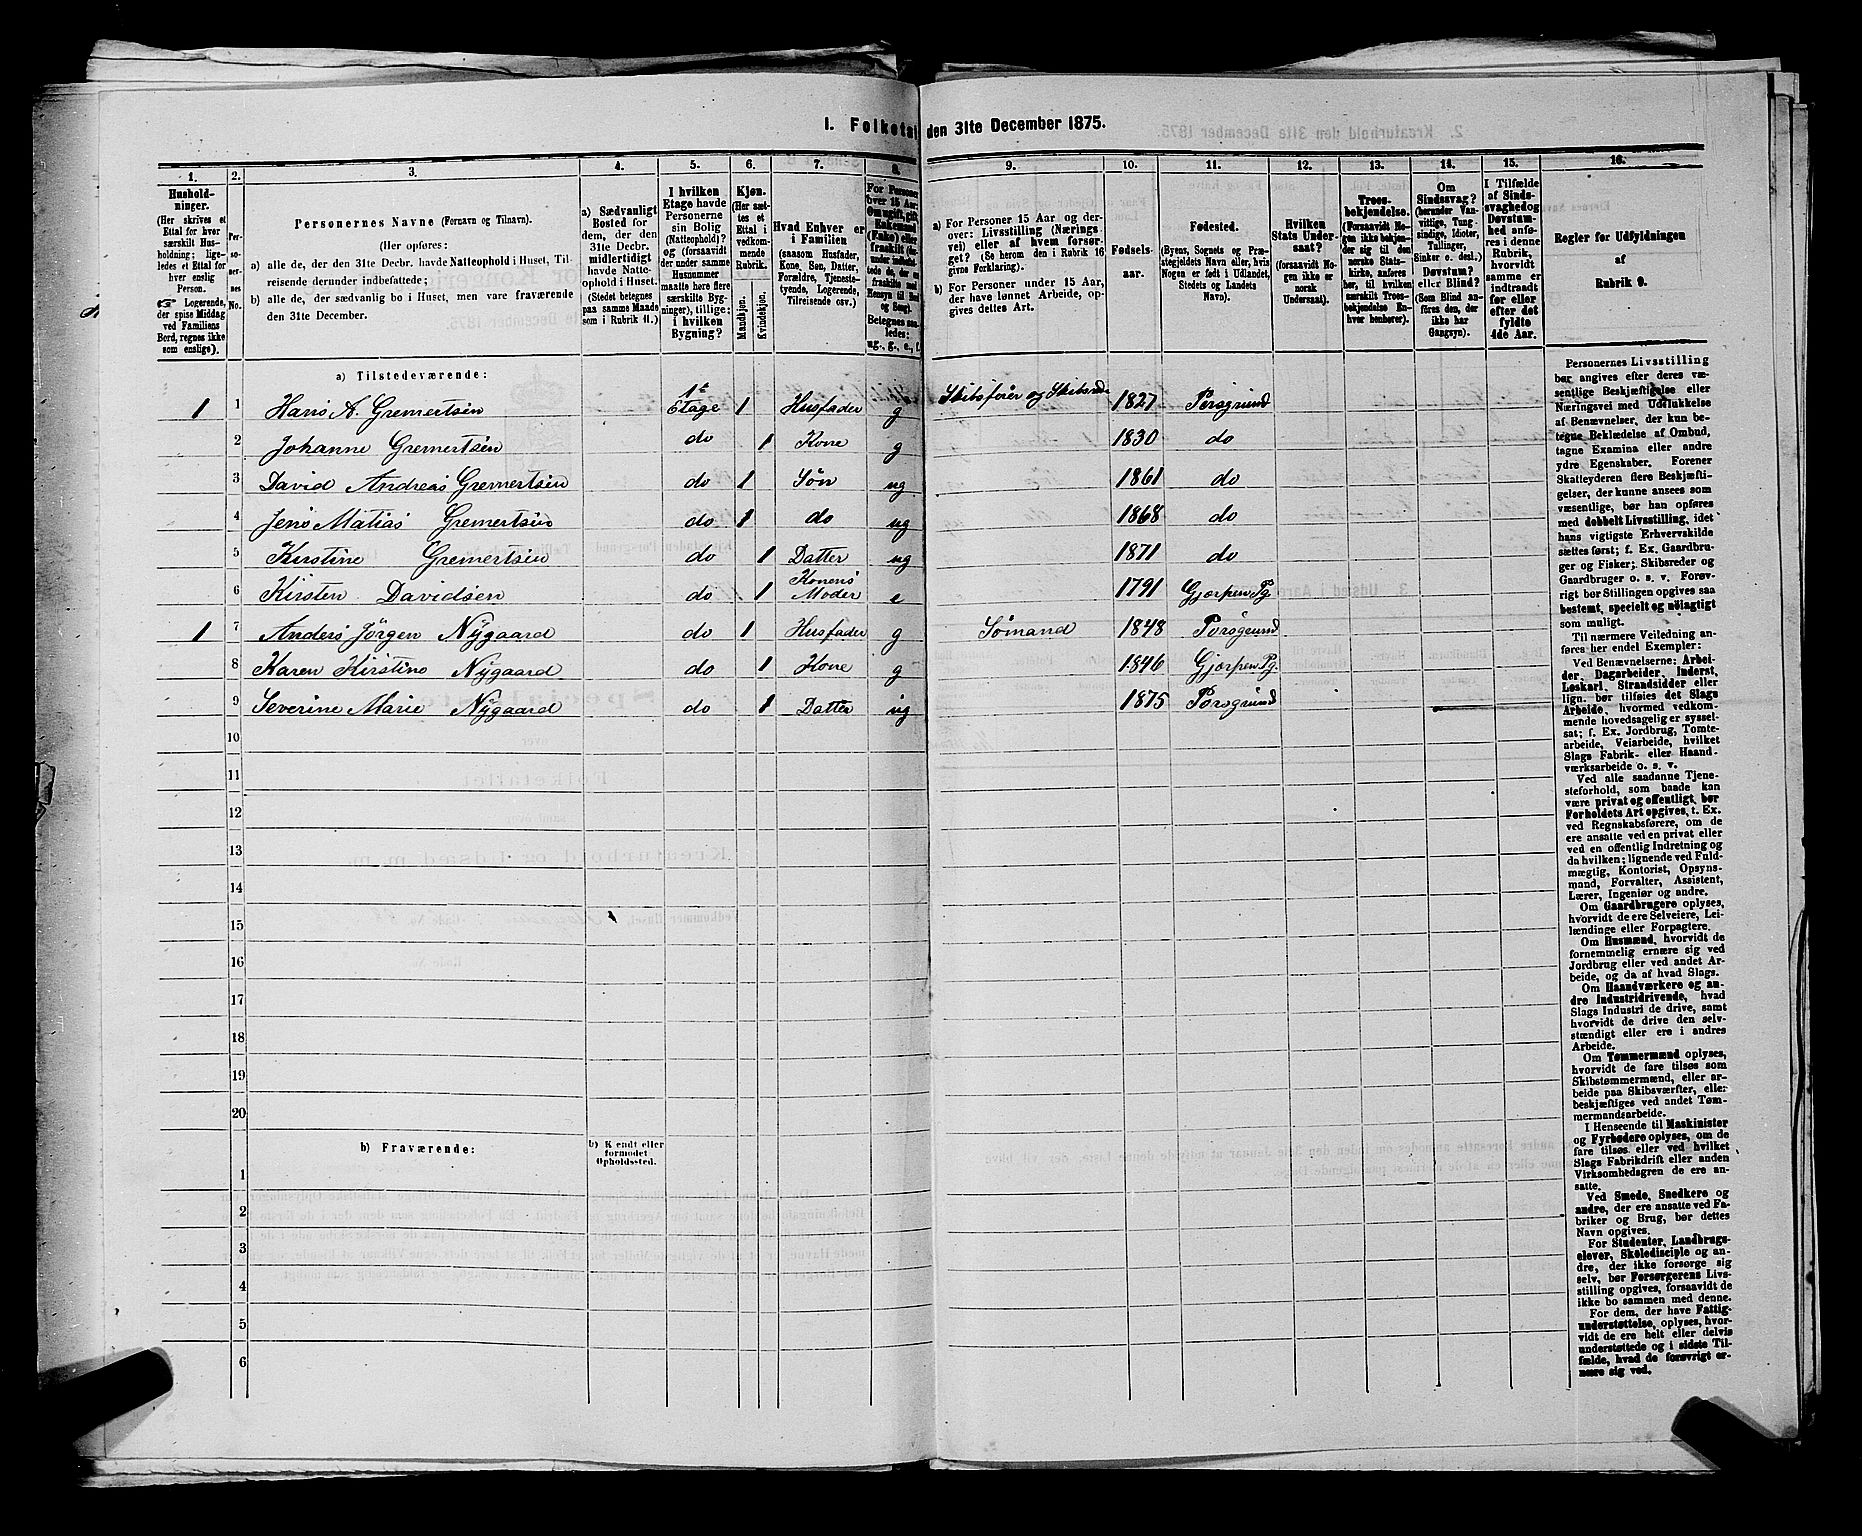 1. Folketæ den 31te December 1875.
1. 2. 3. 4. 5. 6. 7. 8. 9. 10. 11. 12. 13. 14. 15. 16.
Hushold-
ninger.
(Her skrives et
Ettal for hver
særskilt Hus-
holdning; lige-
ledes et Ettal for
hver enslig
Person.
☞ Logerende,
der spise Middag
ved Familiens
Bord, regnes ikke
som enslige).
Per-
so-
ner-
nes
No.
Personernes Navne (Fornavn og Tilnavn).
(Her opføres:
a) alle de, der den 31te Decbr. havde Natteophold i Huset, Til-
reisende derunder indbefattede;
b) alle de, der sædvanlig bo i Huset, men vare fraværende
den 31te December.
a) Sædvanligt
Bosted for
dem, der den
31te Decbr.
midlertidigt
havde Natte-
ophold i Huset.
(Stedet betegnes
paa samme Maade
som i Rubrik 11.)
I hvilken
Etage havde
Personerne
sin Bolig
(Natteophold)?
og (forsaavidt
der under samme
Husnummer
maatte høre flere
særskilte Byg-
ninger), tillige:
i hvilken
Bygning?
Kjøn.
(Her sæt-
tes et
Ettal i
vedkom-
mende
Rubrik.
Mandkjøn.
Kvindekjøn.
Hvad Enhver er
i Familien
(saasom Husfader,
Kone, Søn, Datter,
Forældre, Tjeneste-
tyende, Logerende,
Tilreisende osv.)
For Personer
over 15 Aar:
Om ugift, gift,
Enkemand
(Enke) eller
fraskilt
Betegnes saa-
ledes:
ug., g., e., f.
a) For Personer 15 Aar og der-
over: Livsstilling (Nærings-
vei) eller af hvem forsør-
get? (Se herom den i Rubrik 16
givne Forklaring).
b) For Personer under 15 Aar,
der have lønnet Arbeide, op-
gives dettes Art.
Fødsels-
aar.
Fødested.
(Byens, Sognets og Præ-
stegjeldets Navn eller, hvis
Nogen er født i Udlandet,
Stedets og Landets
Navn).
Hvilken
Stats Under-
saat?
(forsaavidt No-
gen ikke er
norsk
Undersaat).
Troes-
bekjendelse.
(Forsaavidt No-
gen ikke bekjen-
der sig til den
norske Stats-
kirke, anføres
her, til hvilken
særskilt Troes-
bekjendelse En-
hver henhører).
Om
Sindssvag?
(herunder Van-
vittige, Tung-
sindige, Idioter,
Tullinger,
Sinker o. desl.)
Døvstum?
eller Blind?
(Som Blind an-
føres den, der
ikke har
Gangsyn).
I Tilfælde
af Sinds-
svaghed og
Døvstum-
hed anfø-
res i denne
Rubrik,
hvorvidt
samme er
indtraadt
før eller
efter det
fyldte
4de Aar.
Regler for Udfyldningen
af
Rubrik 9.
a) Tilstedeværende:
1 1 Hans A. Gremertsen 1te Etage 1 Husfader g Skibsfører og Skibsred 1827 Porsgrund
2 Johanne Gremertsen do 1 Kone g 1830 do
3 David Andreas Gremertsen do 1 Søn ug 1861 do
4 Jens Matias Gremertsen do 1 do ug 1868 do
5 Kirstine Gremertsen do 1 Datter ug 1871 do
6 Kirsten Davidsen do 1 Konens Moder e 1791 Gjerpen Pg.
1 7 Anders Jørgen Nygaard do 1 Husfader g Sømand 1848 Porsgrund
8 Karen Kirstine Nygaard do 1 Kone g 1846 Gjerpen Pg.
9 Severine Marie Nygaard do 1 Datter ug 1875 Porsgrund
10
11
12
13
14
15
16
17
18
19
20
b) Fraværende: b) Kjendt eller
formodet
Opholdssted.
1
2
3
4
5
6
Personernes Livsstilling
bør angives efter deres væ-
sentlige Beskjæftigelse eller
Næringsvei med Udelukkelse
af Benævnelser, der kun be-
tegne Beklædelse af Ombud,
tagne Examina eller andre
ydre Egenskaber. Forener
Skatteyderen flere Beskjæfti-
gelser, der kunne ansees som
væsentlige, bør han opføres
med dobbelt Livsstilling, idet
hans vigtigste Erhvervskilde
sættes først; f. Ex. Gaardbru-
ger og Fisker; Skibsreder og
Gaardbruger o. s. v. Forøv-
rigt bør Stillingen opgives saa
bestemt, specielt og nøiagtigt
som muligt.
Til nærmere Veiledning an-
føres her endel Exempler:
Ved Benævnelserne: Arbei-
der, Dagarbeider, Inderst,
Løskarl, Strandsidder eller
lign. bør tilføies det Slags
Arbeide, hvormed vedkom-
mende hovedsagelig er syssel-
sat; f. Ex. Jordbrug, Tomte-
arbeide, Veiarbeide, hvilket
Slags Fabrik- eller Haand-
værksarbeide o. s. v.
Ved alle saadanne Tjene-
steforhold, som baade kan
være privat og offentligt, bør
Forholdets Art opgives, t. Ex.
ved Regnskabsførere, om de
ere ansatte ved en privat eller
ved en offentlig Indretning og
da hvilken; lignende ved Fuld-
mægtig, Kontorist, Opsyns-
mand, Forvalter, Assistent,
Lærer, Ingeniør og andre.
Om Gaardbrugere oplyses,
hvorvidt de ere Selveiere, Lei-
lændinge eller Forpagtere.
Om Husmænd, hvorvidt de
fornemmelig ernære sig ved
Jordbrug eller ved andet Ar-
beide, og da af hvad Slags.
Om Haandværkere og an-
dre Industridrivende, hvad
Slags Industri de drive, samt
hvorvidt de drive den selv-
stændigt eller ere i andres
Arbeide.
Om Tømmermænd oplyses,
hvorvidt de fare tilsøs som
Skibstømmermænd, eller ar-
beide paa Skibsværfter, eller
beskjæftiges ved andet Tøm-
mermandsarbeide.
I Henseende til Maskinister
og Fyrbødere oplyses, om de
fare tilsøs eller ved hvilket
Slags Fabrikdrift eller anden
Virksomhedsgren de ere an-
satte.
Ved Smede, Snedkere og
andre, der ere ansatte ved Fa-
briker og Brug, bør dettes
Navn opgives.
For Studenter, Landbrugs-
elever, Skoledisciple og an-
dre, der ikke forsørge sig
selv, bør Forsørgerens Livs-
stilling opgives, forsaavidt de
ikke bo sammen med denne.
For dem, der have Fattig-
understøttelse, oplyses, hvor-
vidt de ere helt eller delvis
understøttede og i sidste Til-
fælde, hvad de forøvrigt er-
nære sig ved.